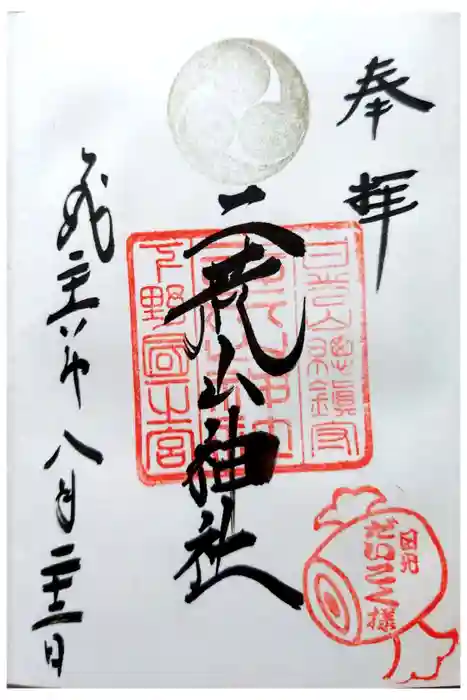 奉拝
二荒山神社
平成二十八年八月二十三日
日光山總鎮守
下野國一之宮
日光
だいこく様